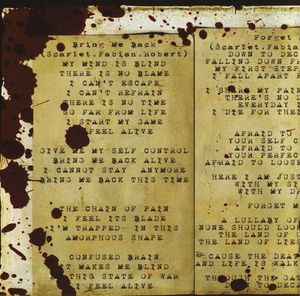 Bring Me Back
(Scarlet.Fabian.Robert)
MY MIND IS BLIND
THERE IS NO BLAME
I CAN'T ESCAPE
I CAN'T REFRAIN
THERE IS NO TIME
SO FAR FROM LIFE
I START MY GAME
I FEEL ALIVE
GIVE ME MY SELF CONTROL
BRING ME BACK ALIVE
I CANNOT STAY ANYMORE
BRING ME BACK THIS TIME
THE CHAIN OF PAIN
I FEEL ITS BLADE
I'M TRAPPED IN THIS
AMORPHOUS SHAPE
CONFUSED BRAIN
IT MAKES ME BLIND
THIS STATE OF WAR
I FEEL ALIVE
Forget
(Scarlet.Fabi
DOWN TO DEC
FALLING DOWN F
MY FIRST STEP
I FALL APART
I SHARE MY PAIN
THERE'S NO
EVERYDAY I
I DIE FOR THE
AFRAID TO
YOUR SELF C
AFRAID TO
YOUR PERFE
AFRAID TO LOOS
HERE I AM JUST
WITH MY S
WITH MY D
FORGET M
A LULLABY OF
NONE SHOULD LOOK
THE LAND OF L
THE LAND OF LIES
'CAUSE THE DEAT
AND LIFE IS WALK
THROUGH THE GAT
DOWN TO DECI